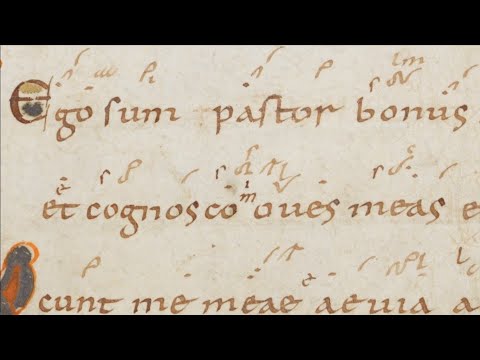 Ego sum pastor bonus
et cognosco oues meas e
cunt me meae aeuia a